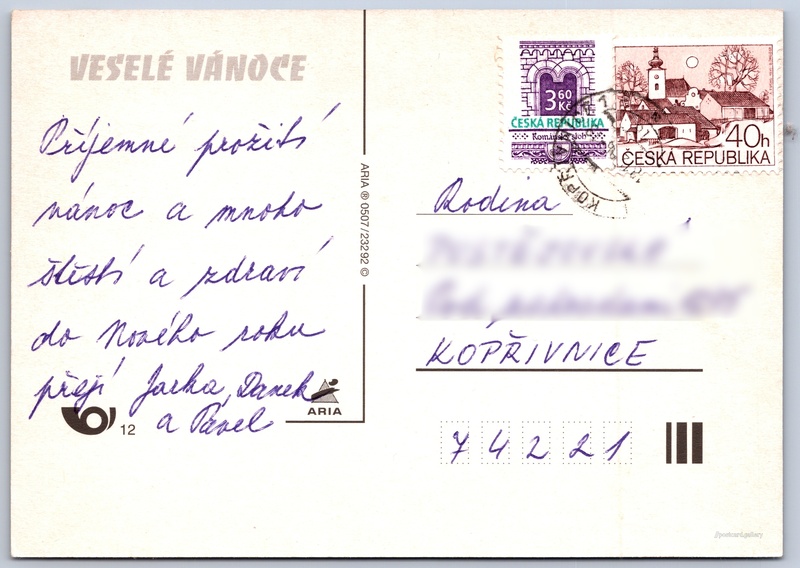 VESELÉ VÁNOCE
Příjemné prožití
vánoc a mnoho
štěstí a zdraví
do Nového roku
přejí Jarka, Danek
a Pavel
12
ARIA
ARIA ® 0507/23292 ©
3 60
Kč
ČESKÁ REPUBLIKA
Románský sloh
40h
ČESKÁ REPUBLIKA
Rodina
KOPŘIVNICE
74221